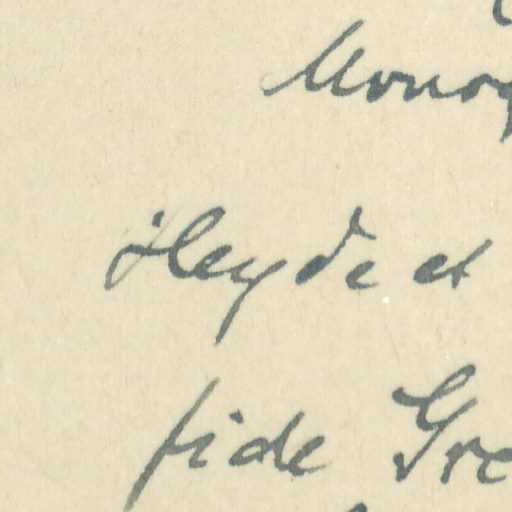 Monog
Heyde et
fide Gre